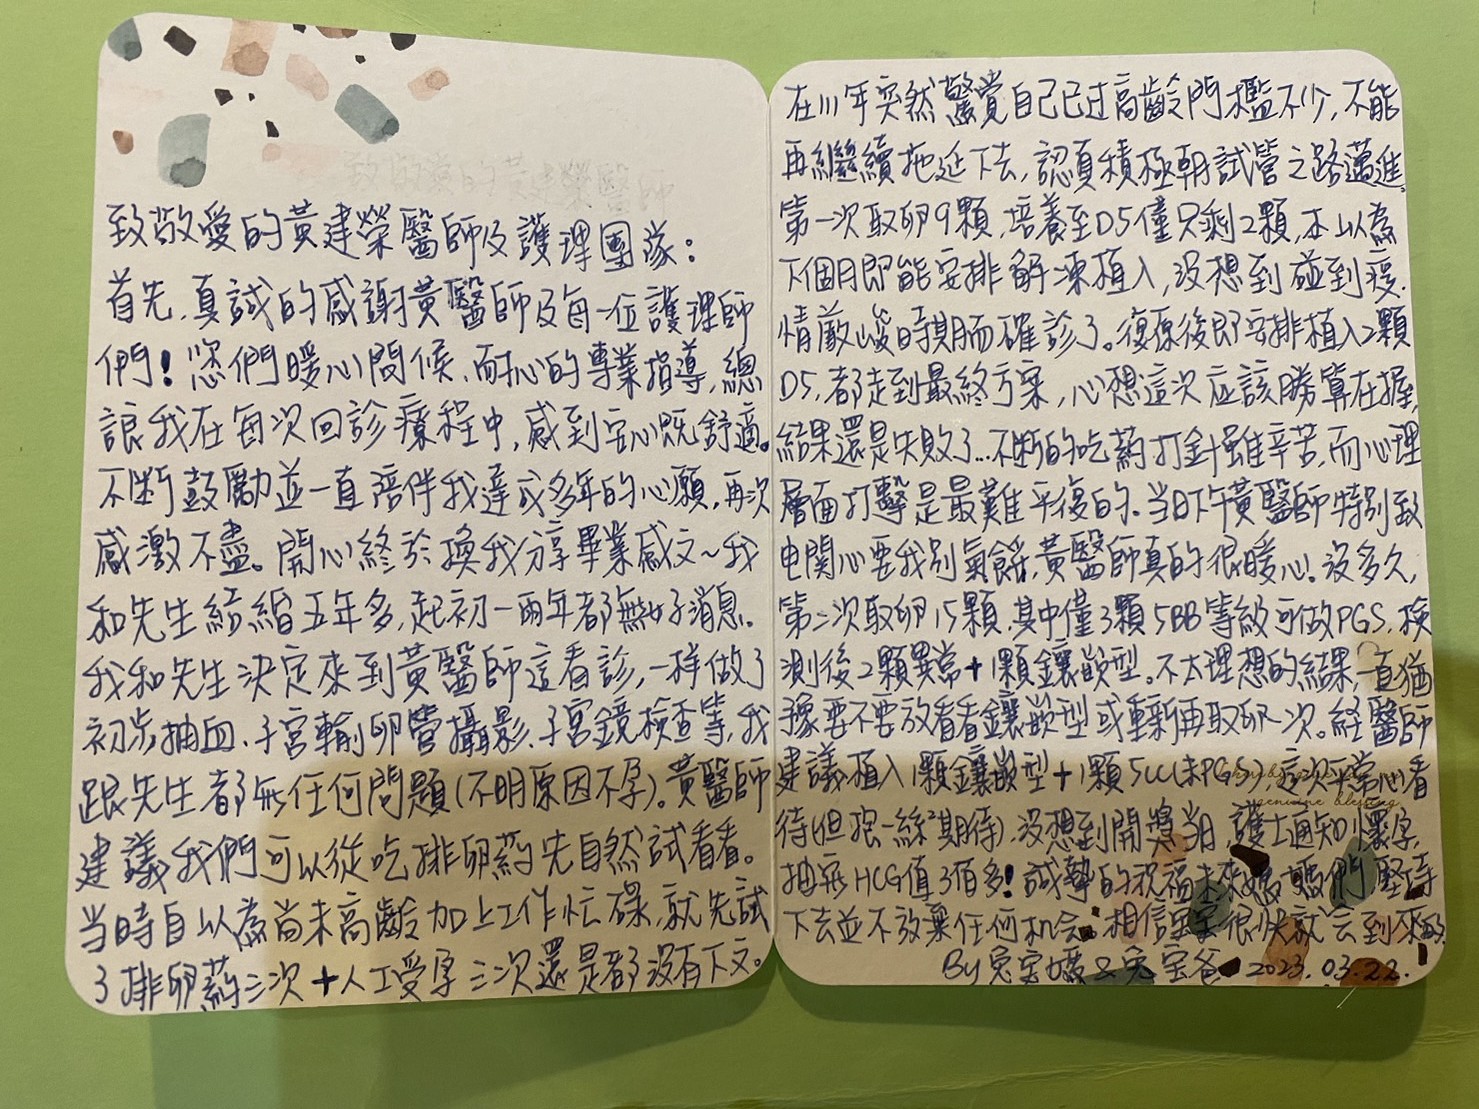 致敬愛的黃建榮醫師
致敬愛的黃建榮醫師及護理團隊：
首先,真誠的感謝黃醫師及每一位護理師
們！您們暖心問候、耐心的專業指導,總
讓我在每次回診療程中,感到安心既舒適。
不斷鼓勵並一直陪伴我達成多年的心願,再次
感激不盡。開心終於換我分享畢業感文~我
和先生結婚五年多,起初一兩年都無好消息.
我和先生決定來到黃醫師這看診,一樣做了
初步抽血、子宮輸卵管攝影、子宮鏡檢查等,我
跟先生都無任何問題(不明原因不孕)。黃醫師
建議我們可以從吃排卵葯先自然試看看。
当時自以為尚未高齡加上工作忙碌,就先試
了排卵葯三次+人工受孕三次還是都沒有下文。
在111年突然驚覺自己已过高齡門檻不少,不能
再繼續拖延下去,認真積極朝試管之路邁進。
第一次取卵9顆,培養至D5僅只剩2顆,本以為
下個月即能安排解凍植入,沒想到碰到疫.
情嚴峻時期而確診了。復原後即安排植入2顆
D5,都走到最終方案,心想這次应該勝算在握,
結果還是失敗了...不斷的吃葯打針雖辛苦,而心理
層面打擊是最難平復的.当日下午黃醫師特別致
电関心要我別氣餒,黃醫師真的很暖心!沒多久,
第二次取卵15顆,其中僅3顆5BB等級可做PGS,檢
測後2顆異常+1顆鑲嵌型。不太理想的結果,一直猶
豫要不要放看看鑲嵌型或重新再取卵一次。経醫師
建議植入1顆鑲嵌型+1顆5CC(未PGS),這次平常心看
待(但抱一絲絲期待).沒想到開獎当日,護士通知懷孕,
抽血HCG值3佰多!誠摯的祝福未來媽媽們堅持
下去並不放棄任何机会.相信宝宝很快就会到來的.
By 兔宝媽&兔宝爸 2023.03.22.
genuine blessing